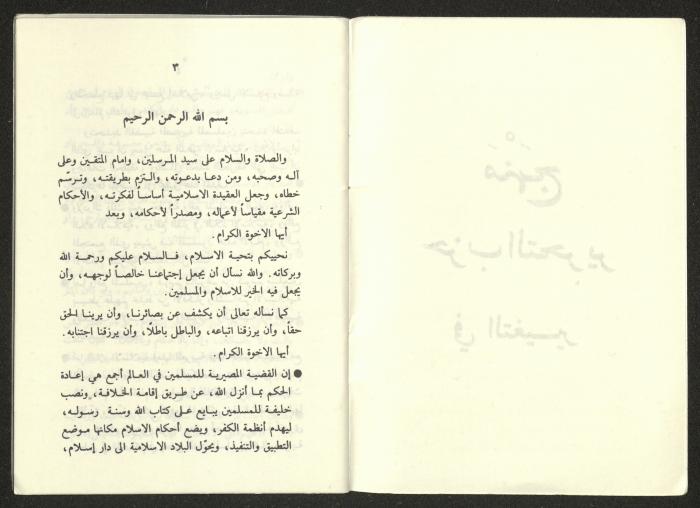 منهج
حزب التحرير
في التغيير
٣
بسم الله الرحمن الرحيم
والصلاة والسلام على سيد المرسلين، وامام المتقين وعلى
آله وصحبه، ومن دعا بدعوته، والتزم بطريقته، وترسّم
خطاه، وجعل العقيدة الاسلامية أساساً لفكرته، والأحكام
الشرعية مقياساً لأعماله، ومصدراً لأحكامه، وبعد
أيها الاخوة الكرام.
نحييكم بتحية الاسلام، فالسلام عليكم ورحمة الله
وبركاته. والله نسأل أن يجعل إجتماعنا خالصاً لوجهه، وأن
يجعل فيه الخير للاسلام والمسلمين.
كما نسأله تعالى أن يكشف عن بصائرنا، وأن يرينا الحق
حقاً، وأن يرزقنا اتباعه، والباطل باطلًا، وأن يرزقنا اجتنابه.
أيها الاخوة الكرام.
● إن القضية المصيرية للمسلمين في العالم أجمع هي إعادة
الحكم بما أنزل الله، عن طريق إقامة الخلافة، ونصب
خليفة للمسلمين يبايع على كتاب الله وسنة رسوله،
ليهدم أنظمة الكفر، ويضع أحكام الاسلام مكانها موضع
التطبيق والتنفيذ، ويحوّل البلاد الاسلامية الى دار إسلام،